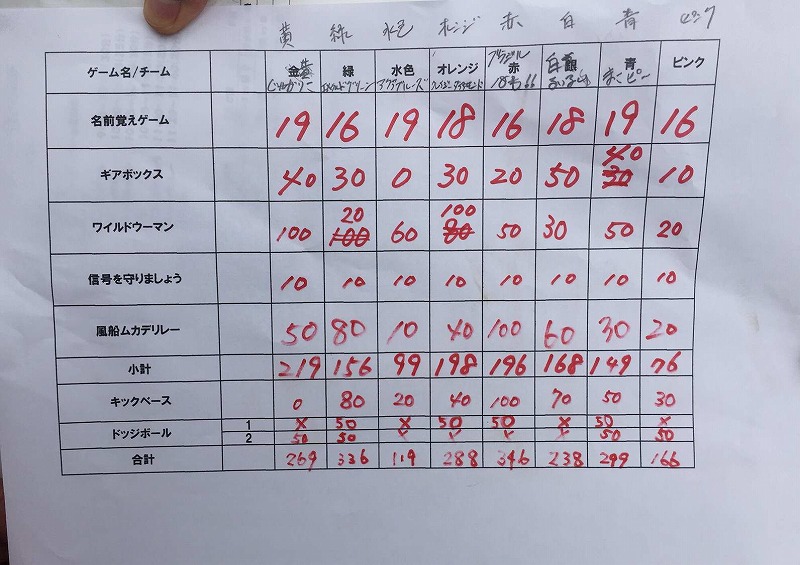 黄 緑 水色 オレンジ 赤 白 青 ピンク
ゲーム名/チーム 金 緑 水色 オレンジ 赤 白 銀 青 ピンク
エメラルドグリーン アクアブルーズ ブラジル まっピー
名前覚えゲーム 19 16 19 18 16 18 19 16
ギアボックス 40 30 0 30 20 50 40 30 10
ワイルドウーマン 100 20 100 60 100 80 50 30 50 20
信号を守りましょう 10 10 10 10 10 10 10 10
風船ムカデリレー 50 80 10 40 100 60 30 20
小計 219 156 99 198 196 168 149 76
キックベース 0 80 20 40 100 70 50 30
ドッジボール 1 × 50 × 50 50 × 50 ×
2 50 50 × × × × 50 50
合計 269 336 119 288 346 238 299 166